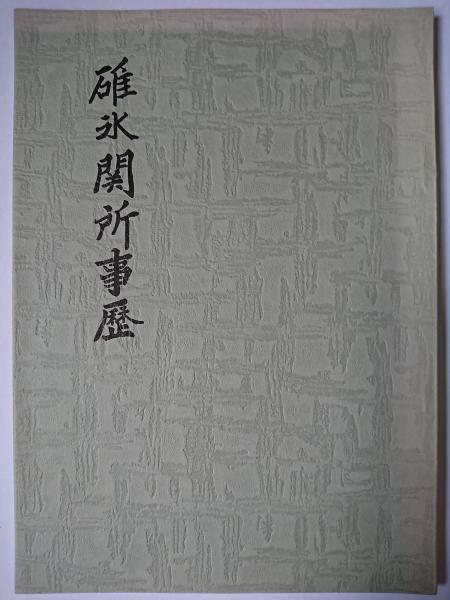 碓氷関所事歴